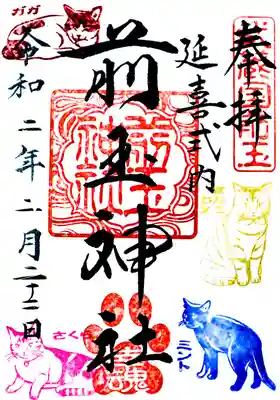 奉拝
延喜式内
前玉神社
令和二年二月二十二日
ガガ
さくら
ミント